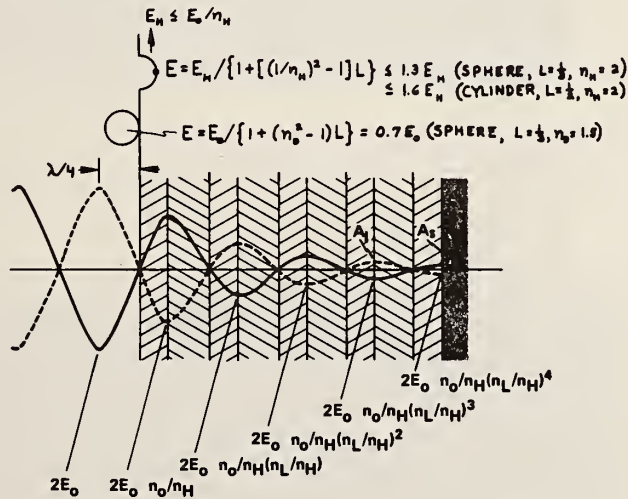 E_H ≤ E_o/n_H
E = E_H/{1+[(1/n_H)²-1]L} ≤ 1.3 E_H (SPHERE, L=⅓, n_H=2)
≤ 1.6 E_H (CYLINDER, L=½, n_H=2)
E = E_o/{1+(n_o²-1)L} = 0.7 E_o (SPHERE, L=⅓, n_o=1.5)
λ/4
A₁ A₂
2E_o n_o/n_H(n_L/n_H)⁴
2E_o n_o/n_H(n_L/n_H)³
2E_o n_o/n_H(n_L/n_H)²
2E_o n_o/n_H(n_L/n_H)
2E_o 2E_o n_o/n_H